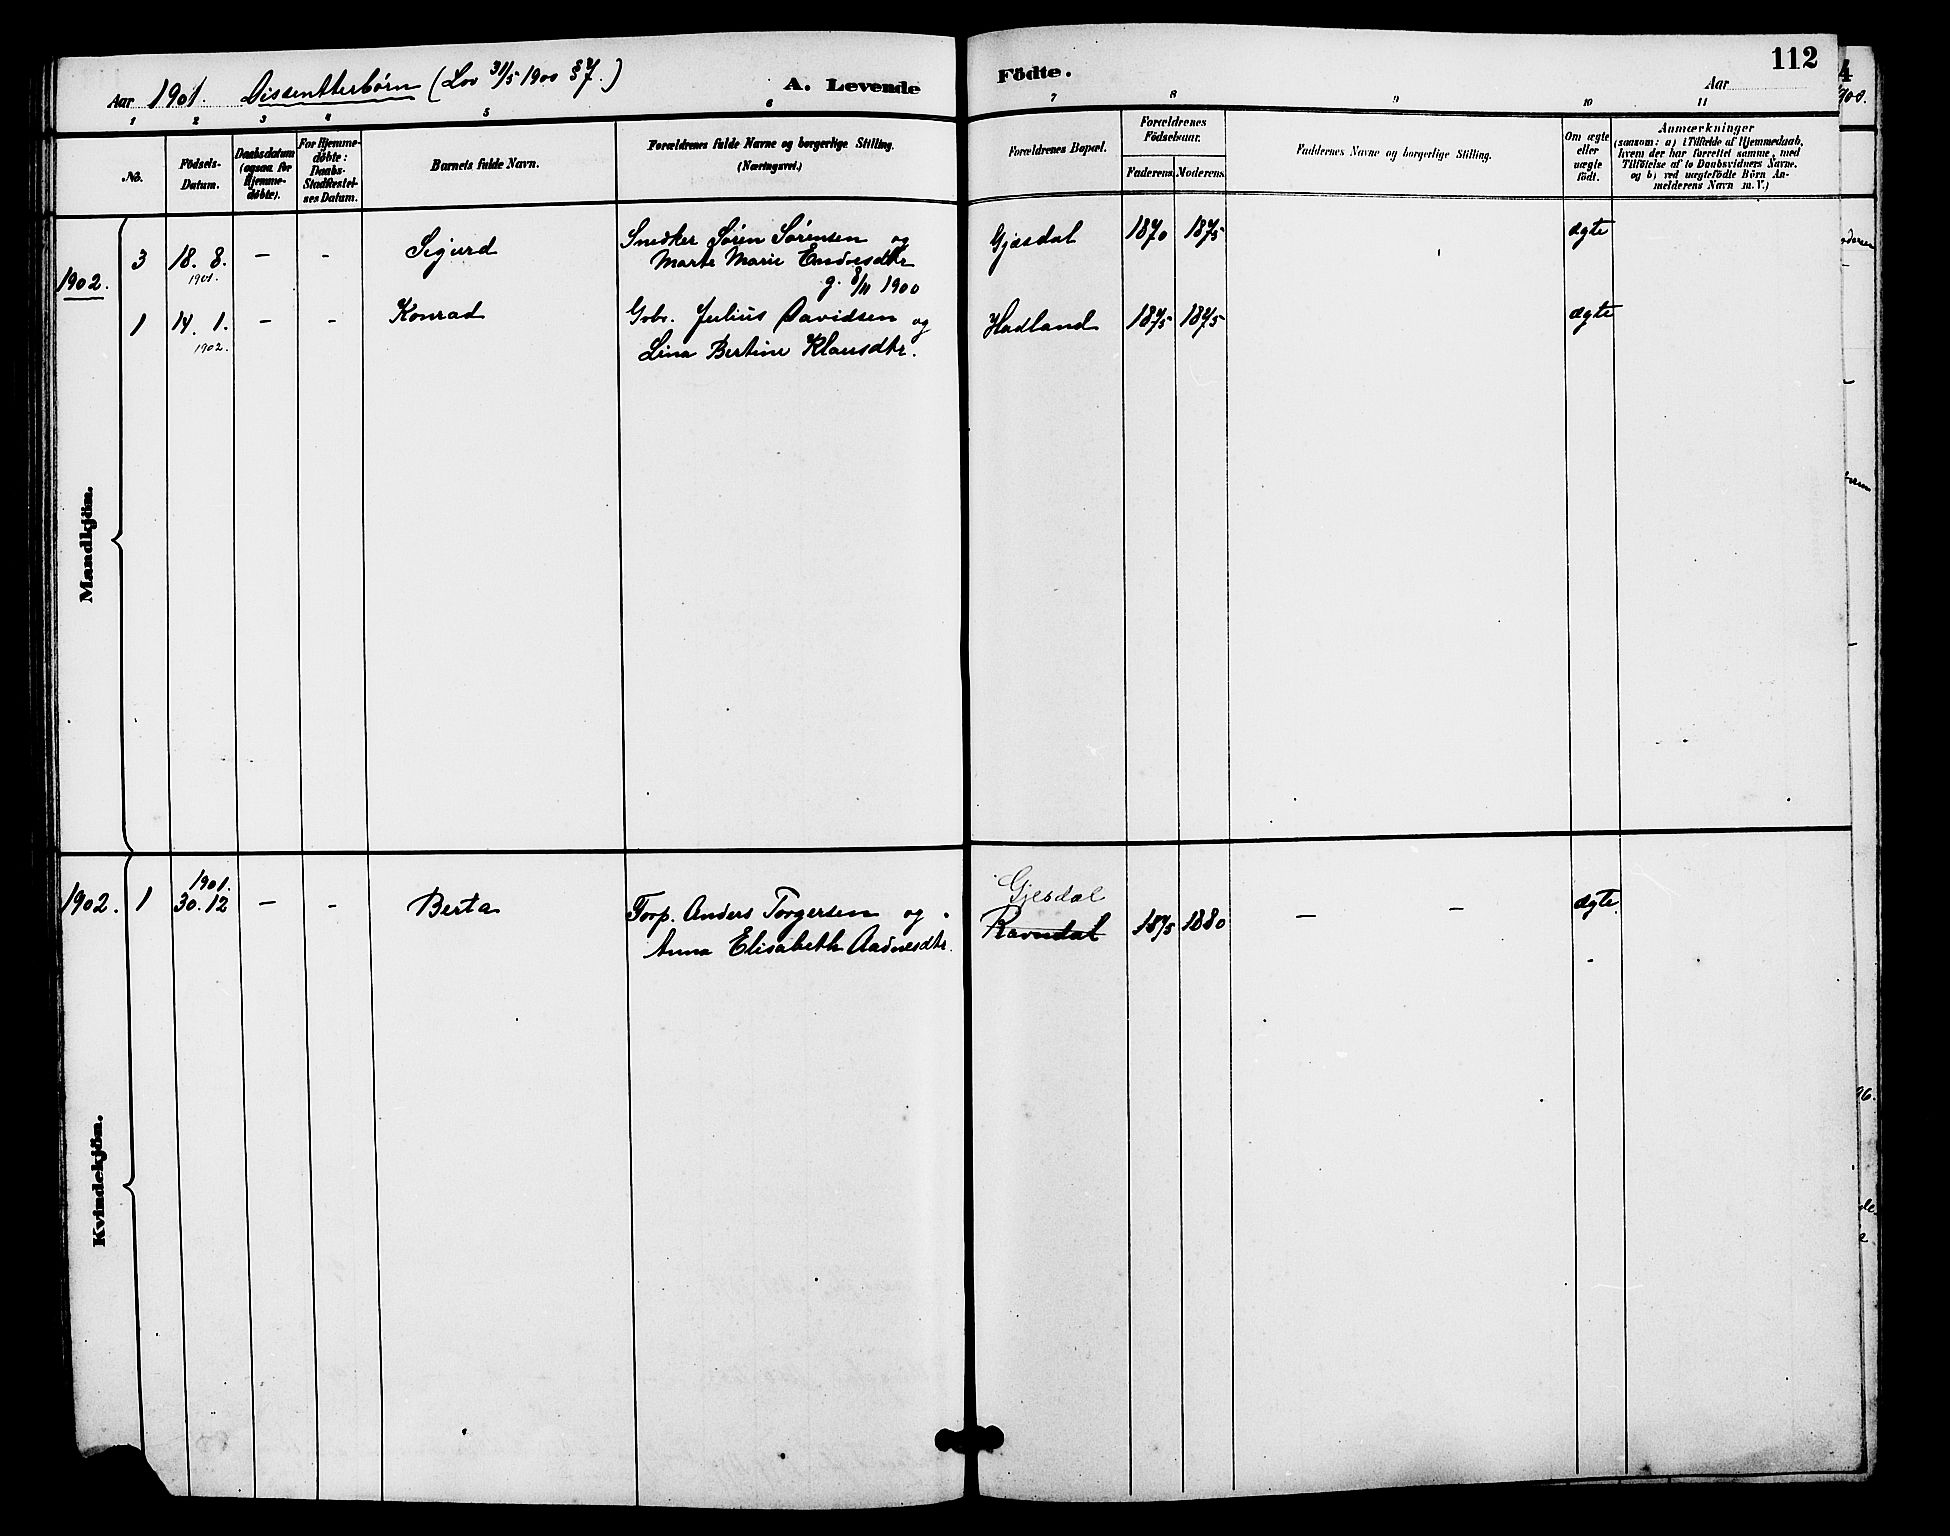 112
Aar 1901. Dissentterbörn (Lov 31/5 1900 § 7.)
A. Levende Födte.
Aar
1 2 3 4 5 6 7 8 9 10 11
No.
Födsels-
Datum.
Daabsdatum
(ogsaa for
Hjemme-
døbte).
For Hjemme-
døbte:
Daabs-
Stadfæstel-
ses Datum.
Barnets fulde Navn.
Forældrenes fulde Navne og borgerlige Stilling.
(Næringsvei.)
Forældrenes Bopæl.
Forældrenes
Födselsaar.
Faderens. Moderens.
Faddernes Navne og borgerlige Stilling.
Om ægte
eller
uægte
födt.
Anmærkninger
(saasom: a) i Tilfælde af Hjemmedaab,
hvem der har forrettet samme, med
Tilföielse af to Daabsvidners Navne.
og b) ved uægtefödte Börn An-
melderens Navn m. V.)
Mandkjön.
3 18. 8. – – Sigurd Snedker Søren Sørensen og Gjesdal 1870 1875 ægte
1901. Marte Marie Endresdtr
g. 8/11 1900
1902.
1 14. 1. – – Konrad Gbr. Julius Davidsen og Hadland 1875 1875 ægte
1902. Lina Bertine Klausdtr.
Kvindekjön.
1901. Gjesdal
1902. 1 30. 12 – – Berta Forp. Anders Torgersen og Ravndal 1875 1880 – – ægte.
Anna Elisabeth Aadnesdtr.